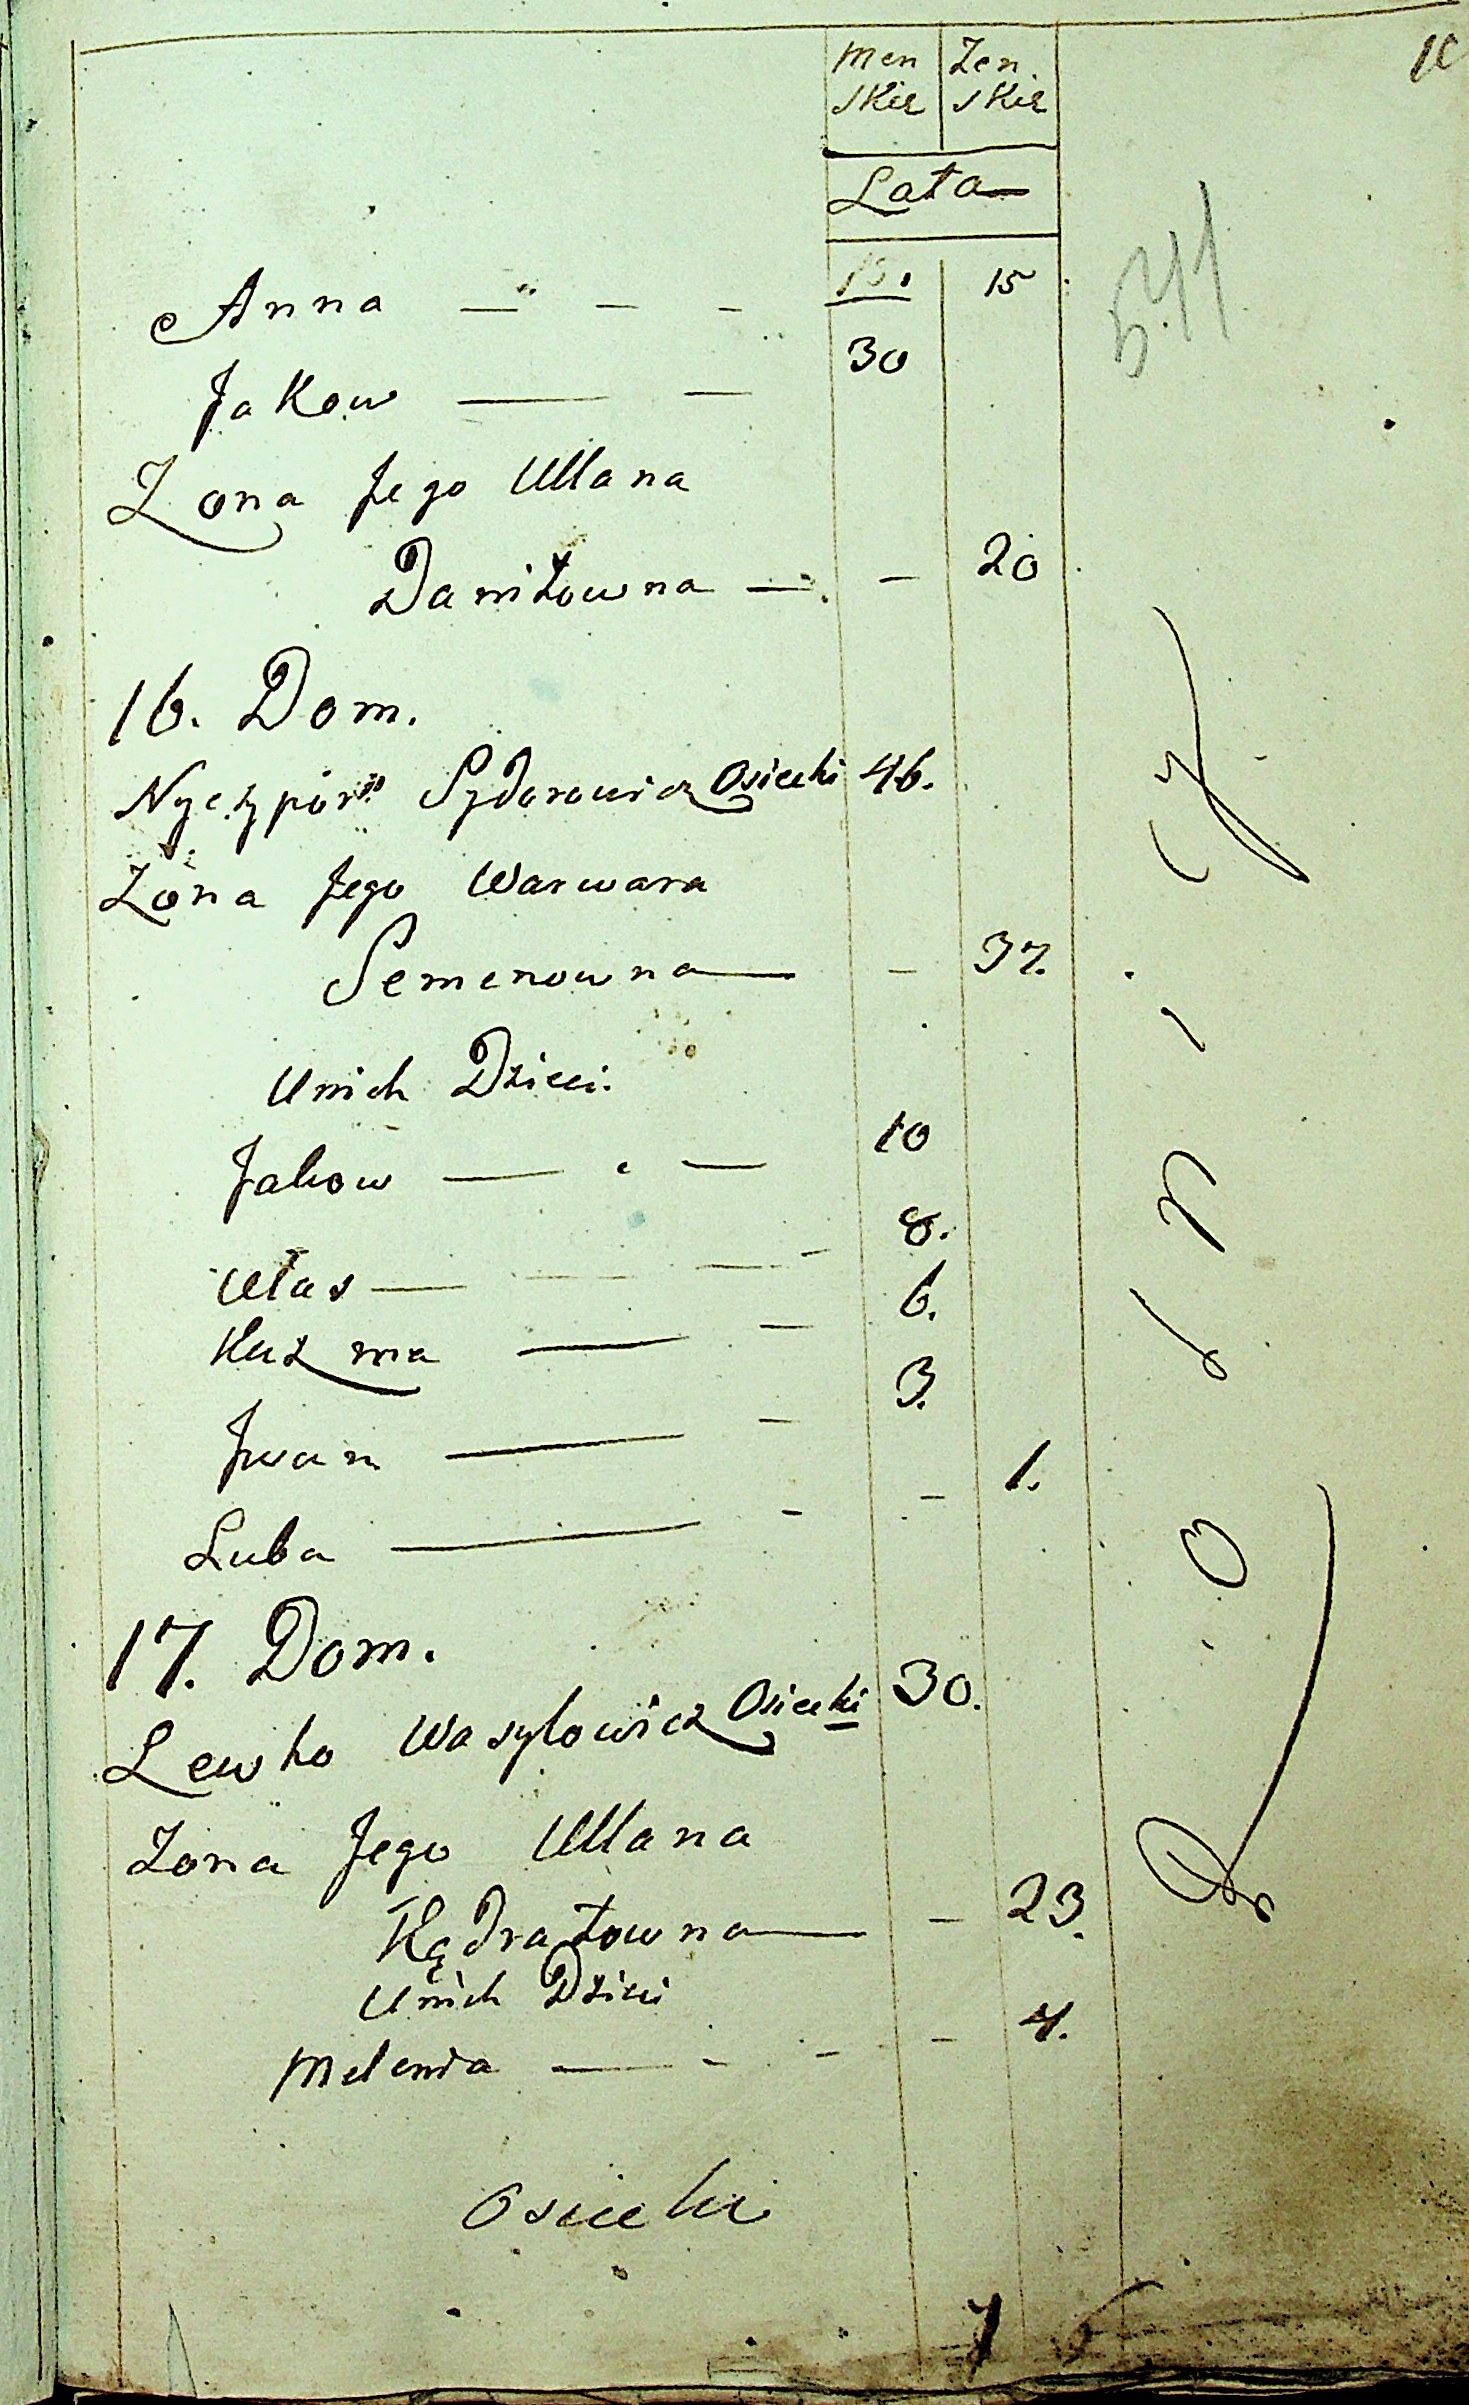 Men | Zen
skie | skie
Lata
Anna — " — - 15
Jakow — — 30
Zona Jego Ullana
Daniłowna — - 20
16. Dom.
Nyczypór Sydorowicz Osiecki 46.
Zona Jego Warwara
Semenowna — - 37.
Unich Dzieci.
Jakow — — 10
Ułas — — — - 8.
Kuzma — — 6.
Jwan — - 3.
Luba — - - 1.
17. Dom.
Lewko Wasylowicz Osiecki 30.
Zona Jego Ullana
Kądratowna — - 23.
Unich Dzieci
Melania — - - - 4.
Osiecki
7